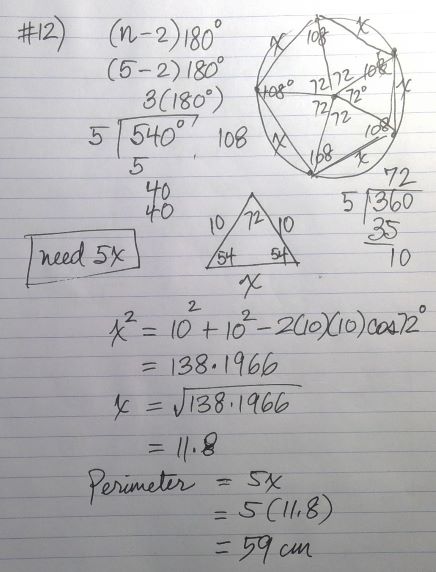 #12) (n-2)180°
(5-2)180°
3(180°)
5 540° 108
5
40
40
x
x
108
108
x
72 72
108°
72 72°
72
108
x
108
x
72
5 360
35
10
need 5x
10 72 10
54 54
x
x² = 10² + 10² - 2(10)(10)cos72°
= 138.1966
x = √138.1966
= 11.8
Perimeter = 5x
= 5(11.8)
= 59 cm